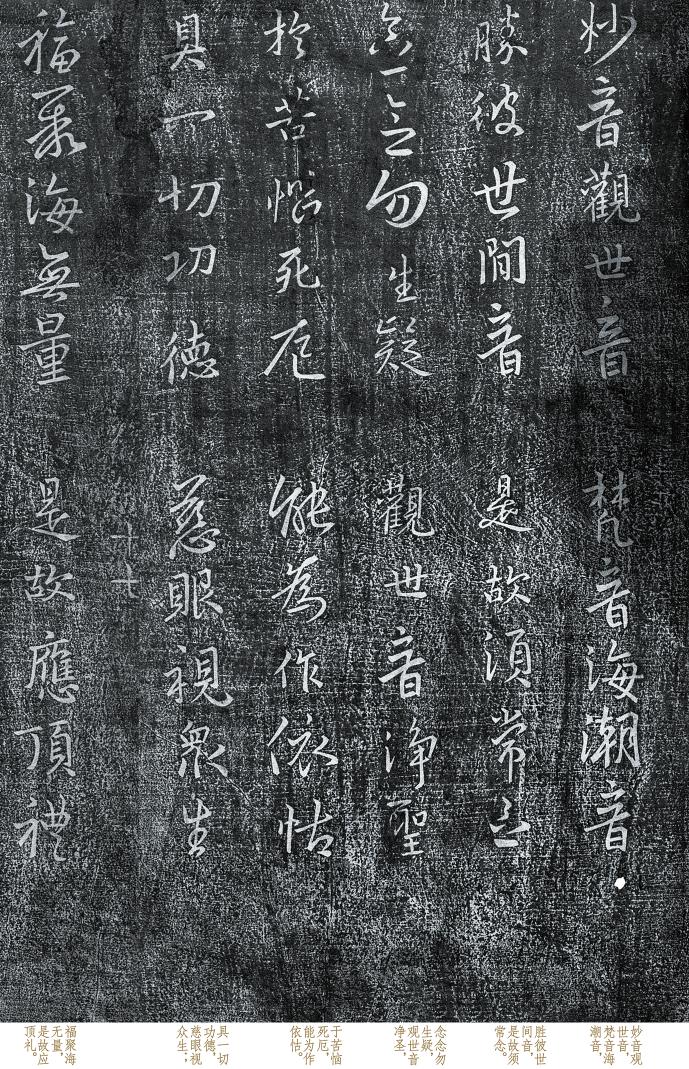 妙音觀世音 梵音海潮音
勝彼世間音 是故須常念
念念勿生疑 觀世音淨聖
於苦惱死厄 能為作依怙
具一切功德 慈眼視衆生
十七
福聚海無量 是故應頂禮
妙音观
世音，
梵音海
潮音，
胜彼世
间音，
是故须
常念。
念念勿
生疑，
观世音
净圣，
于苦恼
死厄，
能为作
依怙。
具一切
功德，
慈眼视
众生；
福聚海
无量，
是故应
顶礼。